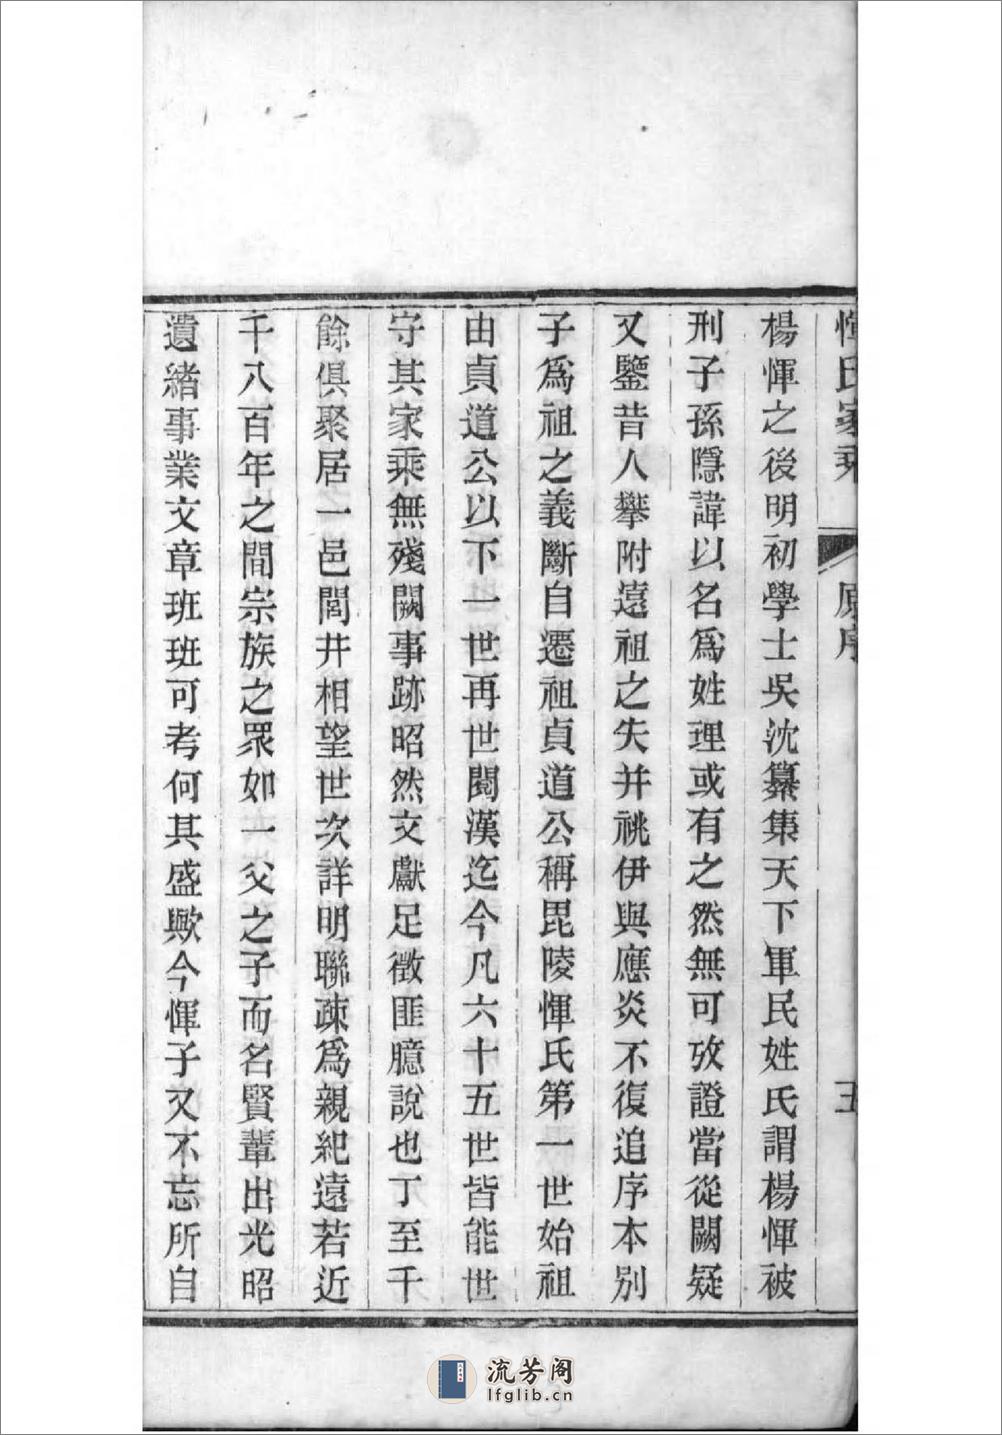 惲氏家乘
原序
五
楊惲之後明初學士吳沈纂集天下軍民姓氏謂楊惲被
刑子孫隱諱以名為姓理或有之然無可攷證當從闕疑
又鑒昔人攀附遠祖之失并祧伊與應炎不復追序本別
子為祖之義斷自遷祖貞道公稱毘陵惲氏第一世始祖
由貞道公以下一世再世閱漢迄今凡六十五世皆能世
守其家乘無殘闕事跡昭然文獻足徵匪臆說也丁至千
餘俱聚居一邑閭井相望世次詳明聯疎為親紀遠若近
千八百年之間宗族之眾如一父之子而名賢輩出光昭
遺緒事業文章班班可考何其盛歟今惲子又不忘所自
流芳阁
lfglib.cn